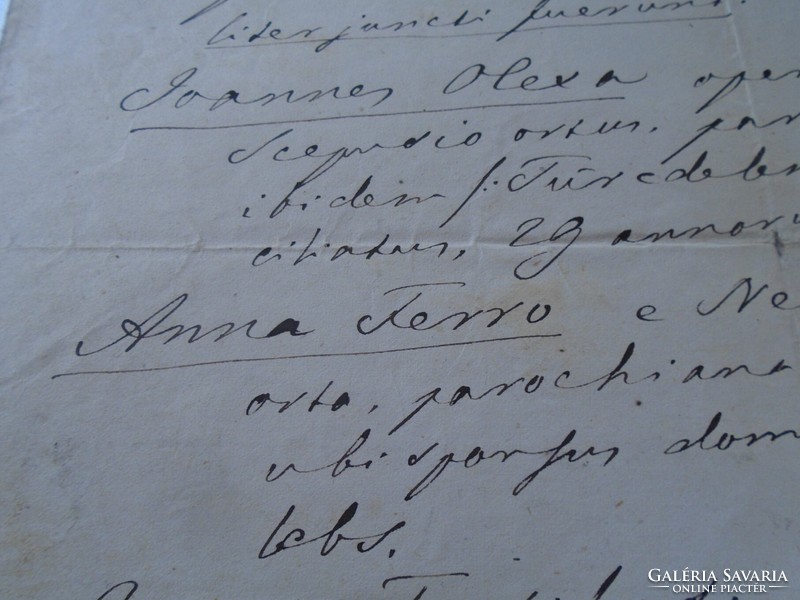 liter juncti fuerunt.
Joannes Olexa oper
Scepusio ortus, par
ibidem /: Túrcdeben
ciliatus, 29 annoru
Anna Ferro e Ne
orta, parochiana
ubi sponsus dom
lebs.
GALÉRIA SAVARIA
ONLINE PIACTÉR